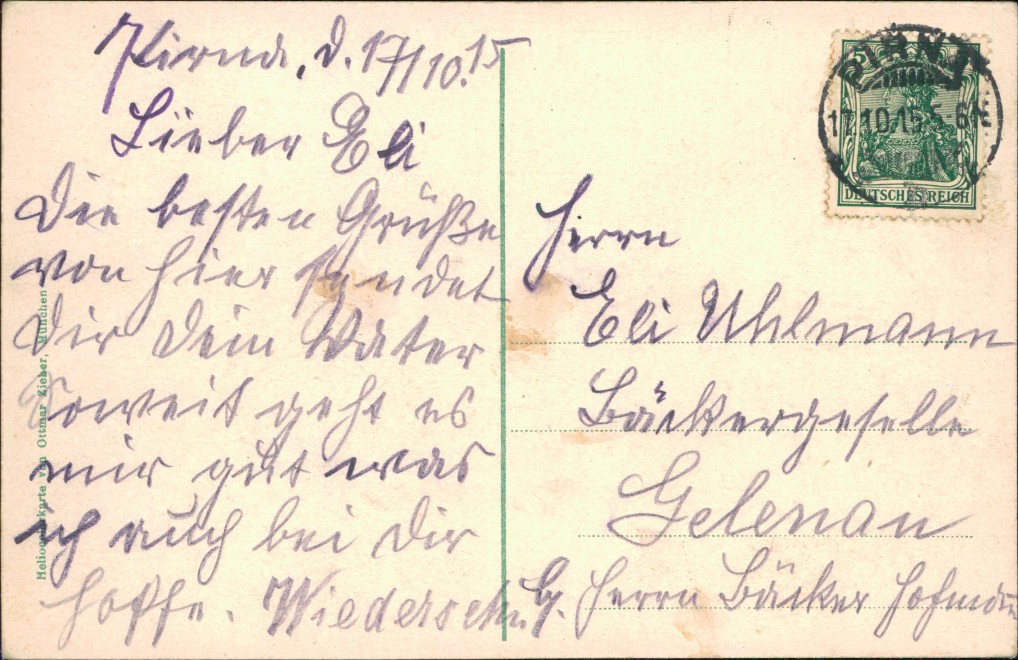 Pirna, d. 17/10.15
Lieber Eli
Die besten Grüße
von hier sendet
Dir Dein Vater
Soweit geht es
mir gut was
ich auch bei Dir
hoffe. Wiedersehn.
Herrn
Eli Uhlmann
Bäckergeselle
Gelenau
b. Herrn Bäcker Hofmann
PIRNA
17.10.15. 6-7N.
5 5
DEUTSCHES REICH
Heliocolorkarte von Ottmar Zieher, München